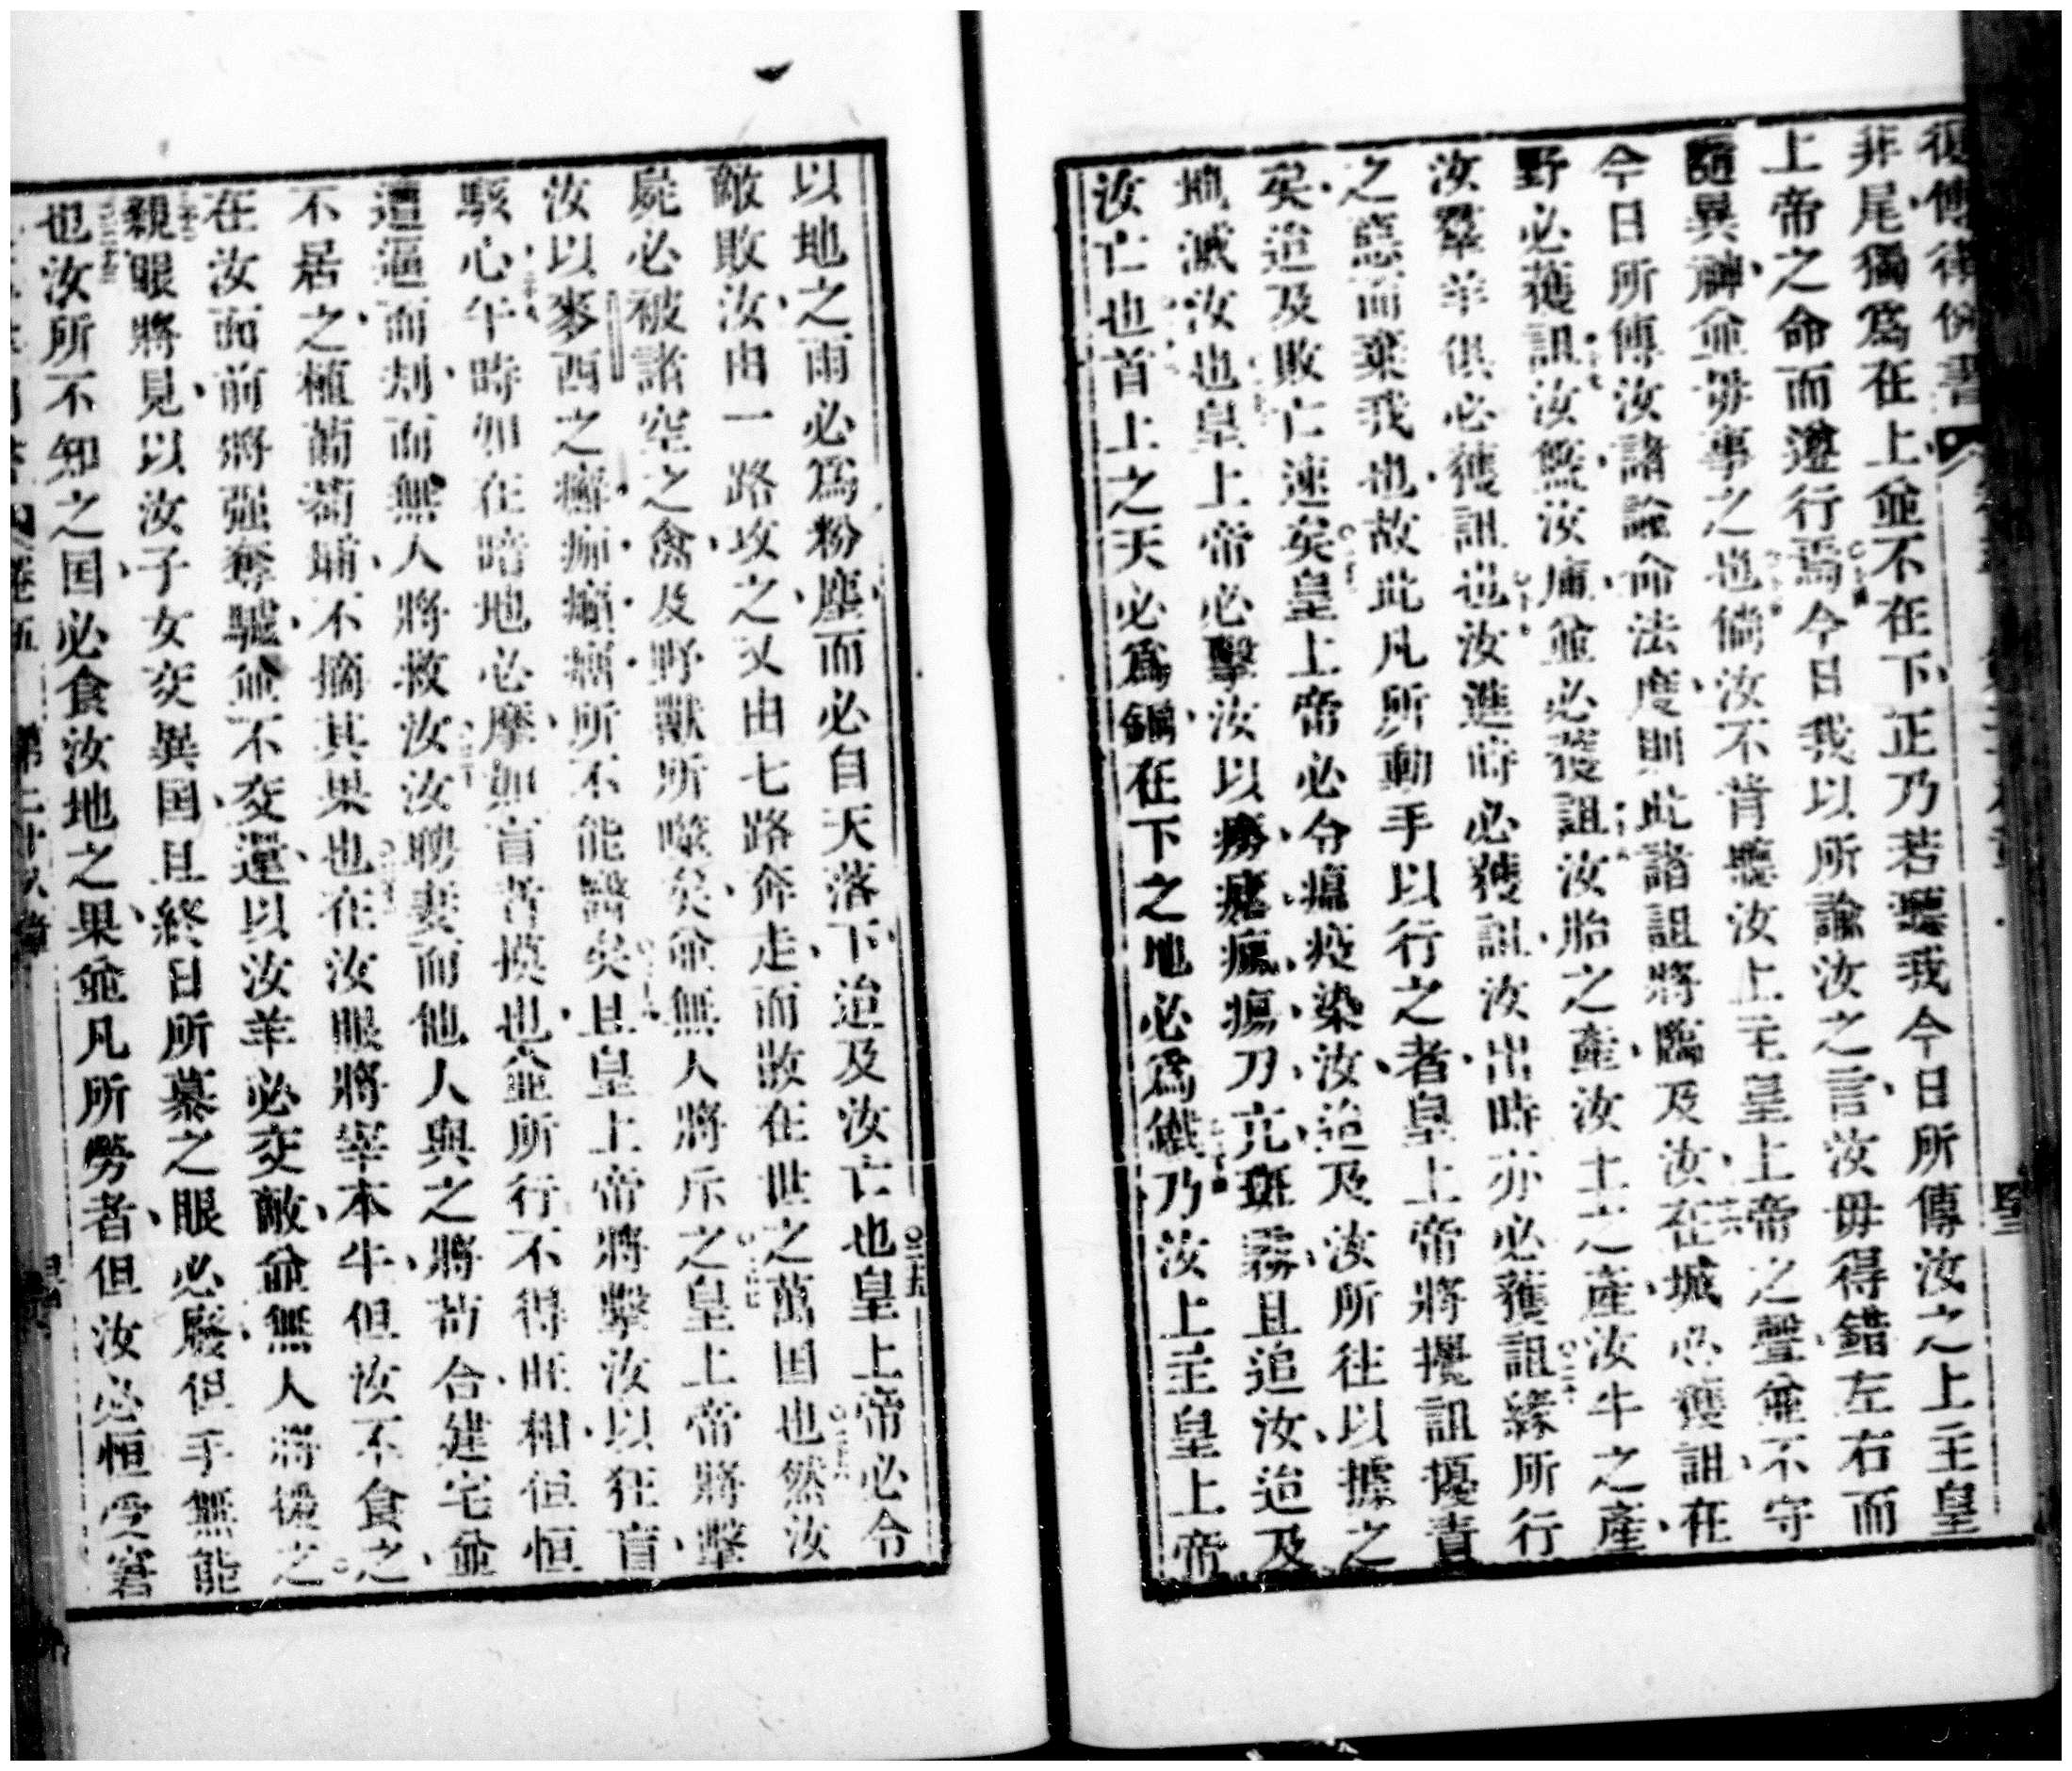 復傳律例書
非尾獨爲在上並不在下正乃若聽我今日所傳汝之上主皇
上帝之命而遵行焉今日我以所諭汝之言汝毋得錯左右而
隨異神並毋事之也倘汝不肯聽汝上主皇上帝之聲並不守
今日所傳汝諸諭命法度則此諸詛將臨及汝在城必獲詛在
野必獲詛汝無汝庫並必獲詛汝胎之產汝土之產汝牛之產
汝羣羊俱必獲詛也汝進時必獲詛汝出時亦必獲詛緣所行
之惡而棄我也故此凡所動手以行之者皇上帝將擾詛擾責
矣迨及敗亡速矣皇上帝必令瘟疫染汝迨及汝所往以據之
地滅汝也皇上帝必擊汝以癆瘧瘋瘍刀亢斑霧且追汝迨及
汝亡也首上之天必爲銅在下之地必爲鐵乃汝上主皇上帝
以地之雨必爲粉塵而必自天落下迨及汝亡也皇上帝必令
敵敗汝由一路攻之又由七路奔走而散在世之萬囯也然汝
屍必被諸空之禽及野獸所噬矣並無人將斥之皇上帝將擊
汝以麥西之癰痂癩疥所不能醫矣且皇上帝將擊汝以狂盲
駭心午時如在暗地必摩如盲者摸也並所行不得旺相但恒
遭逼而刦而無人將救汝汝聘妻而他人與之將苟合建宅並
不居之植葡萄埔不摘其果也在汝眼將宰本牛但汝不食之
在汝面前將强奪驢並不交還以汝羊必交敵並無人將援之
親眼將見以汝子女交異囯且終日所慕之眼必廢但手無能
也汝所不知之囯必食汝地之果並凡所勞者但汝必恒受窘